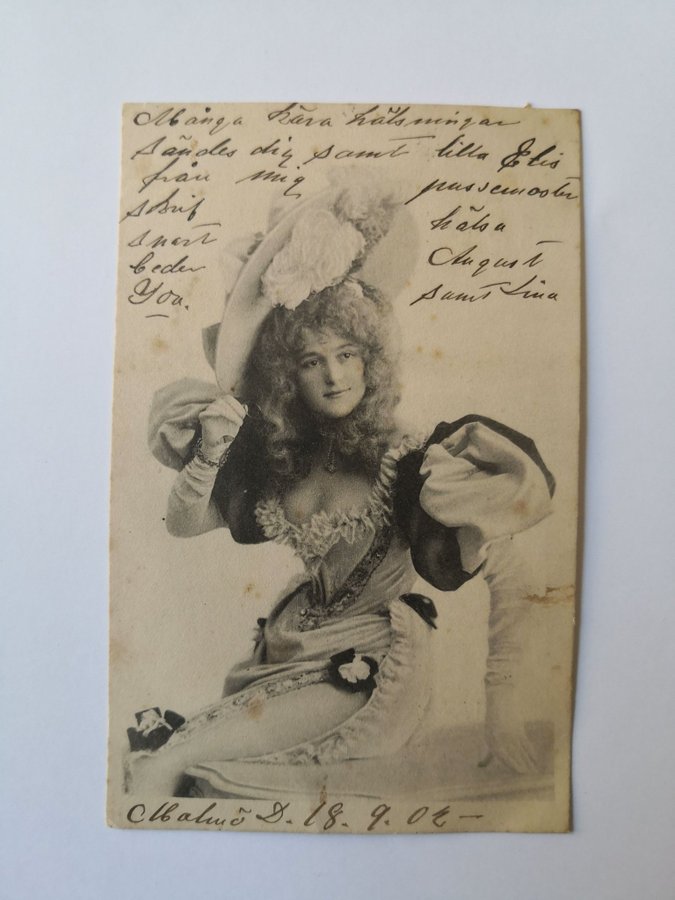 Många kära hälsningar
sändes dig samt lilla Elis
från mig
skrif
snart
beder
Yoa.
pussemoster
hälsa
August
samt Lina
Malmö D. 18. 9. 02 —